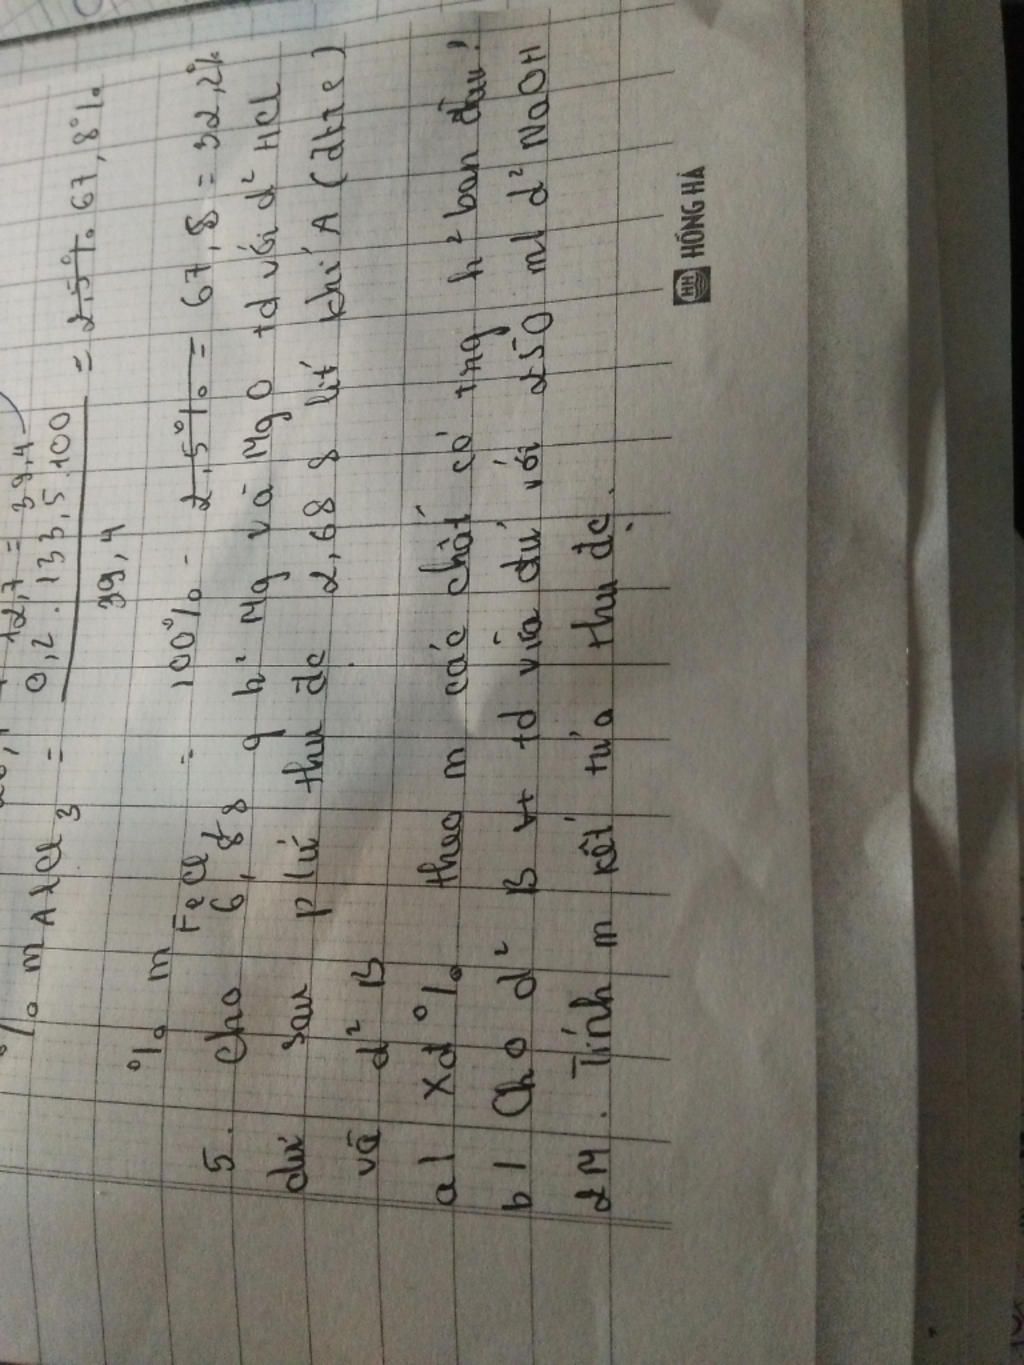 12,7 = 39,4
% m AlCl3 = 0,2 . 133,5 . 100 / 39,4 = 2,5% 67,8%
% m FeCl2 = 100% - 2,5% = 67,8 = 32,2%
5. Cho 6,88 g h² Mg và MgO td với d² HCl
dư sau p/ứ thu đc 2,688 lít khí A (đktc)
và d² B
a/ Xđ % theo m các chất có tng h² ban đầu!
b/ Cho d² B td vừa đủ với 250 ml d² NaOH
2M. Tính m kết tủa thu đc.
HH HỒNG HÀ